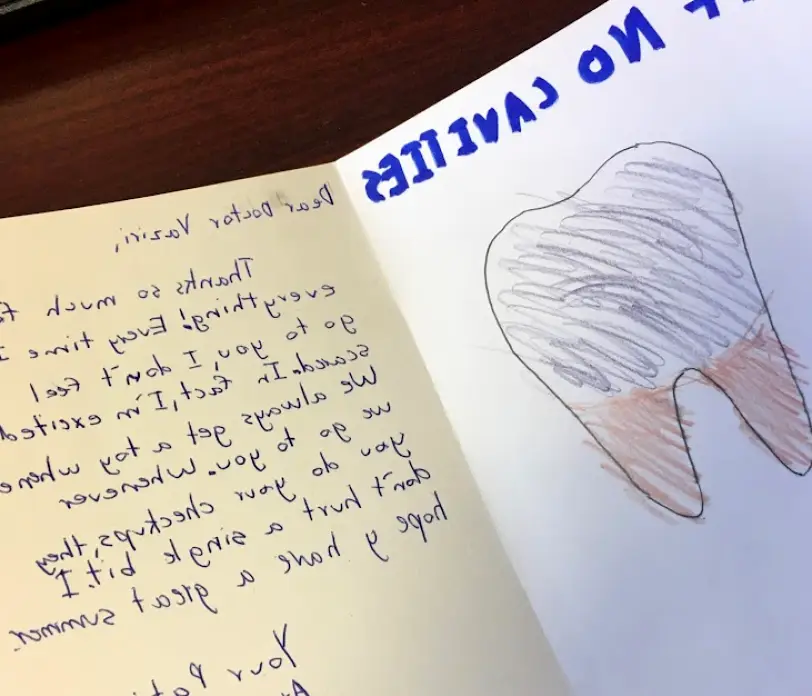 NO CAVITIES
Dear Doctor Vaziri,
Thanks so much
everything! Every time I
go to you, I don't feel
scared. In fact, I'm excited
We always get a toy whene
we go to you. Whenever
you do your checkups, they
don't hurt a single bit. I
hope y have a great summer.
Your